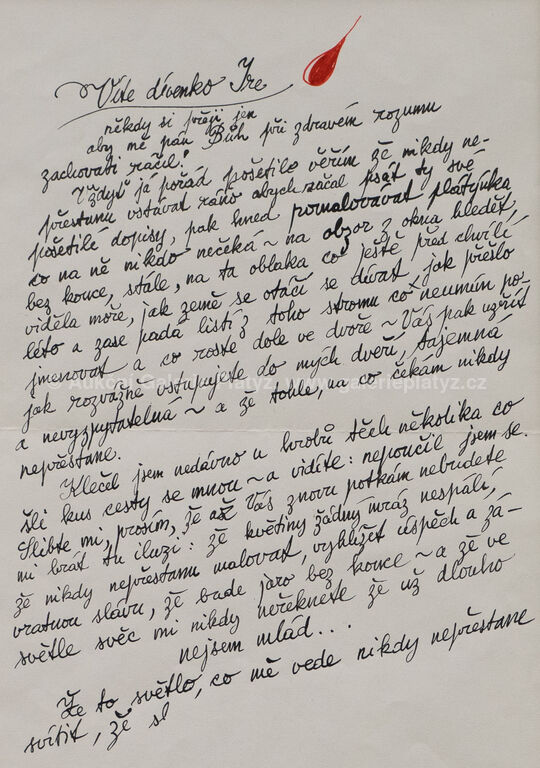 Víte dívenko Ire
někdy si přeji jen
aby mě pán Bůh při zdravém rozumu
zachovati ráčil!
Vždyť já pořád pošetilo věřím že nikdy ne-
přestanu vstávat ráno abych začal psát ty své
pošetilé dopisy, pak hned pomalovávat plátýnka
co na ně nikdo nečeká ~ na obzor z okna hledět,
bez konce, stále, na ta oblaka co ještě před chvílí
viděla moře, jak země se otáčí se dívat, jak přešlo
léto a zase padá listí z toho stromu co neumím po-
jmenovat a co roste dole ve dvoře ~ Vás pak uzřít
jak rozvážně vstupujete do mých dveří, tajemná
a nevyzpytatelná ~ a že tohle, na co čekám nikdy
nepřestane.
© Aukční Galerie Platýz, www.galerieplatyz.cz
Klečel jsem nedávno u hrobů těch několika co
šli kus cesty se mnou ~ a vidíte: nepoučil jsem se.
Slibte mi, prosím, že až Vás znovu potkám nebudete
mi brát tu iluzi: že květiny žádný mráz nespálí,
že nikdy nepřestanu malovat, vyhlížet úspěch a zá-
vratnou slávu, že bude jaro bez konce ~ a že ve
světle svěc mi nikdy neřeknete že už dlouho
nejsem mlád...
Že to světlo, co mě vede nikdy nepřestane
svítit, že sl